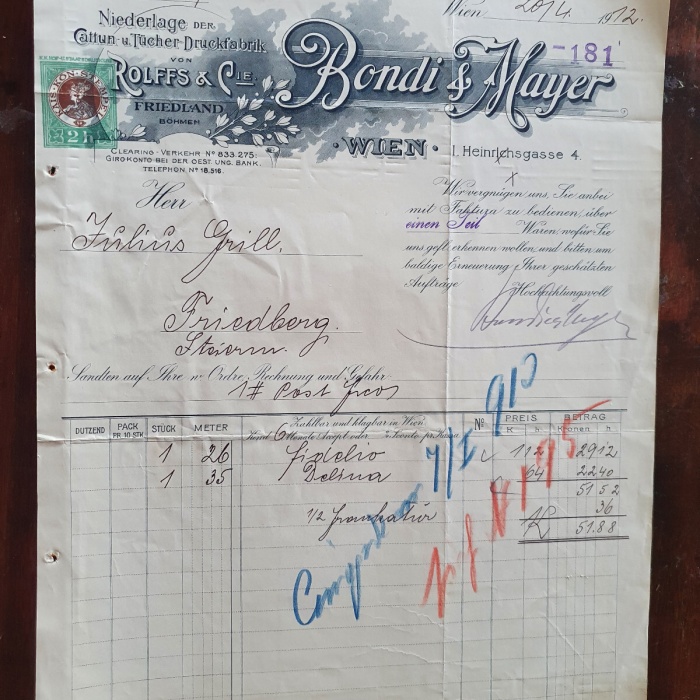 Niederlage DER
Cattun- u. Tücher-Druckfabrik
VON
ROLFFS & CIE.
FRIEDLAND
BÖHMEN
CLEARING-VERKEHR Nº 833.275.
GIROKONTO BEI DER OEST. UNG. BANK.
TELEPHON Nº 18.516.
2 h
Wien, 20/4. 1912.
181
Bondi & Mayer
WIEN I. Heinrichsgasse 4.
Herr
Julius Grill.
Friedberg.
Steierm.
Wir vergnügen uns, Sie anbei
mit Faktura zu bedienen, über
einen Teil Waren, wofür Sie
uns geft. erkennen wollen, und bitten um
baldige Erneuerung Ihrer geschätzten
Aufträge
Hochachtungsvoll
Bondi & Mayer
Sandten auf Ihre w. Ordre, Rechnung und Gefahr
1 # Post
Zahlbar und klagbar in Wien
DUTZEND PACK PR. 10 STK STÜCK METER 6 Monate Nº PREIS K h BETRAG Kronen h
1 26 Fidelio 112 29 12
1 35 Delina 64 22 40
51 52
1/2 Frankatur 36
K 51.88